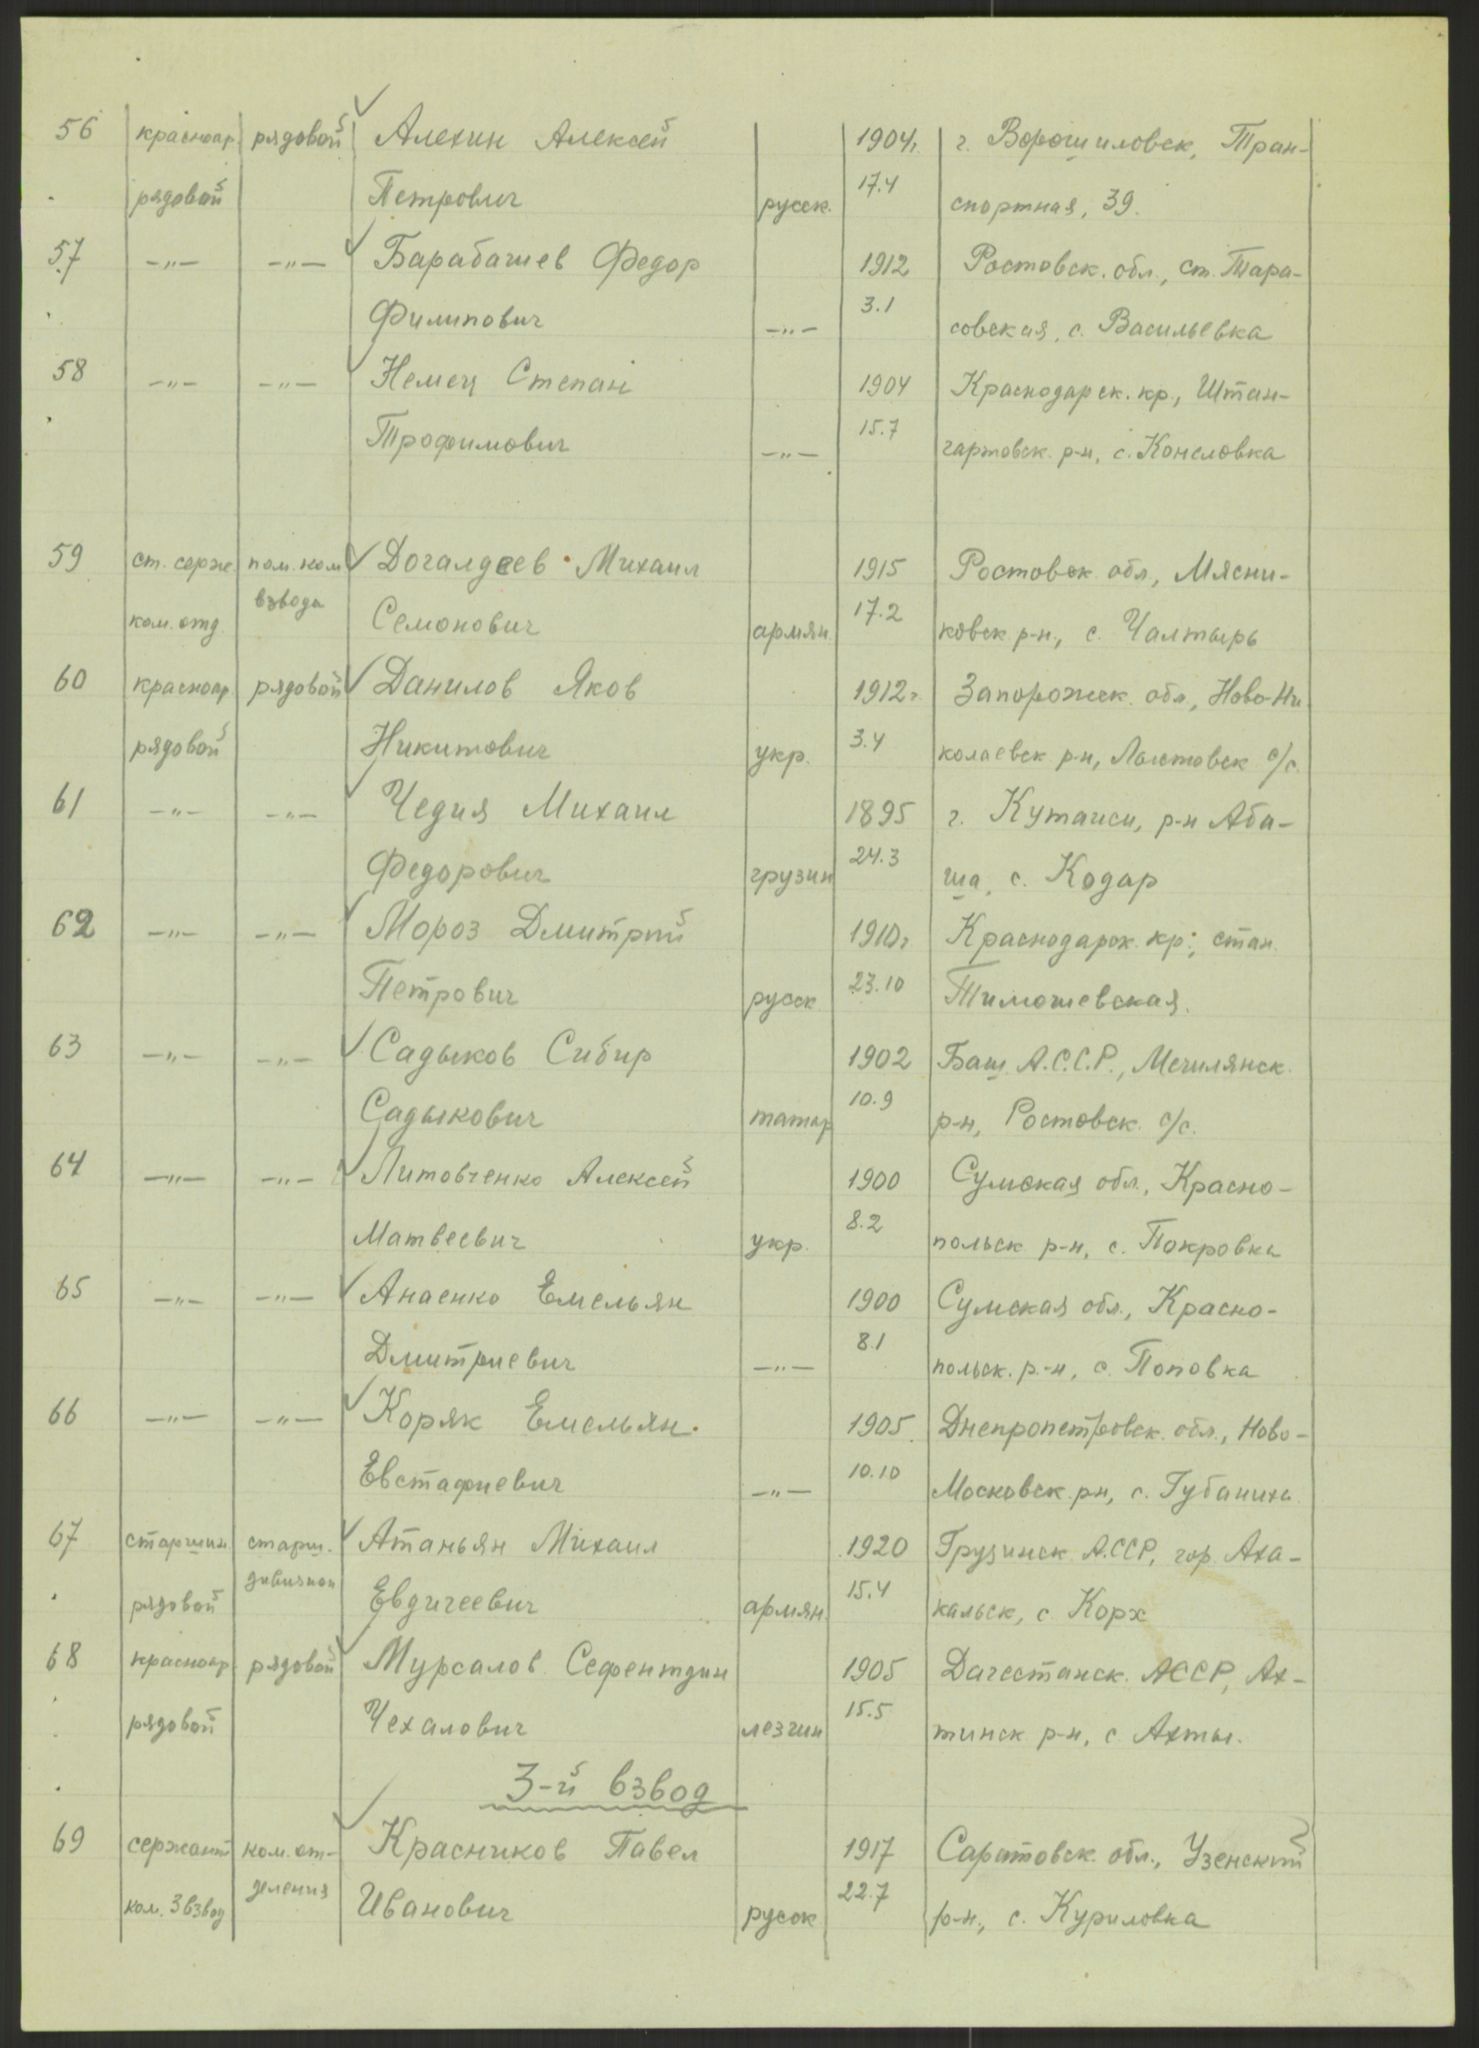 56 красноар. рядовой Алехин Алексей 1904г. г. Ворошиловск, Тран-
рядовой Петрович русск. 17.4 спортная, 39.
57 —"— —"— Барабашев Федор 1912 Ростовск. обл., ст. Тара-
Филипович —"— 3.1 совская, с. Васильевка
58 —"— —"— Немец Степан 1904 Краснодарск. кр., Штан-
Трофимович —"— 15.7 гартовск. р-н, с. Конеловка
59 ст. серж. пом. ком Догалдеев Михаил 1915 Ростовск обл, Мясни-
ком. отд. взвода Семонович армян. 17.2 ковск р-н, с. Чалтырь
60 красноар. рядовой Данилов Яков 1912г. Запорожск. обл, Ново-Ни
рядовой Никитович укр. 3.4 колаевск р-н, с/с.
61 —"— —"— Чедия Михаил 1895 г. Кутаиси, р-н Аба-
Федорович грузин 24.3 ша, с. Кодар
62 —"— —"— Мороз Дмитрий 1910г Краснодарск. кр., стан.
Петрович русск 23.10 Тимошевская.
63 —"— —"— Садыков Сибир 1902 Баш. А.С.С.Р., Мечилянск.
Садыкович татар 10.9 р-н, Ростовск. с/с.
64 —"— —"— Литовченко Алексей 1900 Сумская обл., Красно-
Матвеевич укр. 8.2 польск р-н, с. Покровка
65 —"— —"— Анаенко Емельян 1900 Сумская обл., Красно-
Дмитриевич —"— 8.1 польск. р-н, с. Поповка
66 —"— —"— Коряк Емельян 1905. Днепропетровск. обл., Ново-
Евстафиевич —"— 10.10 Московск. рн, с. Губаниха
67 старшин. старш. Атаньян Михаил 1920 Грузинск А.ССР, гор. Аха-
рядовой дивизион Евдигеевич армян. 15.4 кальск, с. Корх
68 красноар. рядовой Мурсалов Сефентдин 1905 Дагестанск. АССР, Ах-
рядовой Чехалович лезгин 15.5 тинск р-н, с Ахты.
3-й взвод
69 сержант ком. от- Красников Павел 1917 Саратовск. обл., Узенский
ком. 3 взвод деления Иванович русск 22.7 р-н., с. Куриловка